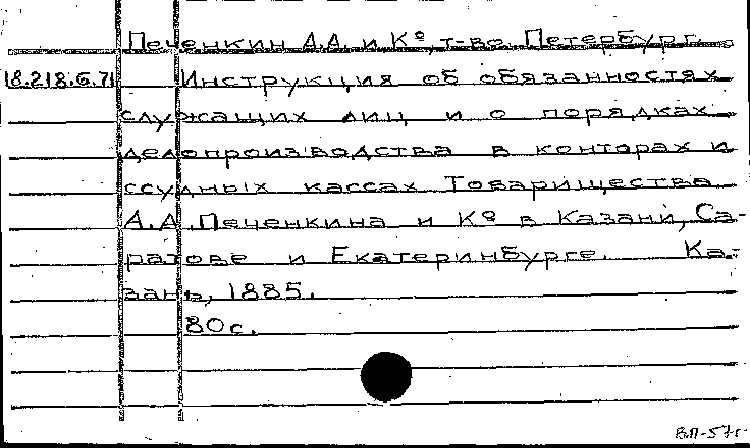 Печенкин А.А. и К°, т-во. Петербург.
18.218.6.71 Инструкция об обязанностях
служащих лиц и о порядках
делопроизводства в конторах и
ссудных кассах Товарищества
А.А. Печенкина и К° в Казани, Са-
ратове и Екатеринбурге. Ка-
зань, 1885.
80 с.